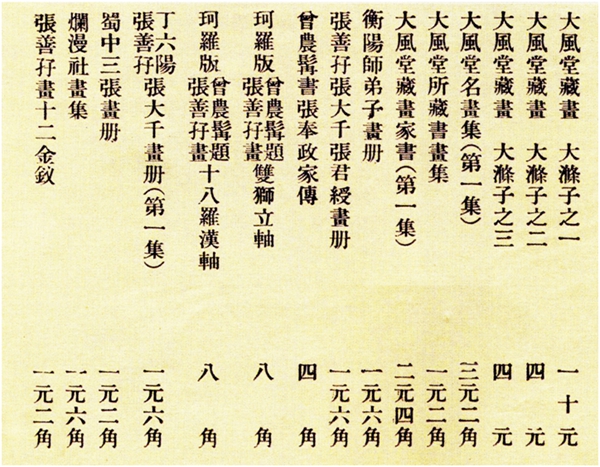 大風堂藏畫　大滌子之一　一十元
大風堂藏畫　大滌子之二　四元
大風堂藏畫　大滌子之三　四元
大風堂名畫集（第一集）　三元二角
大風堂所藏書畫集　一元二角
大風堂藏畫家書（第一集）　二元四角
衡陽師弟子畫册　一元六角
張善孖張大千張君綬畫册　一元六角
曾農髯書張奉政家傳　四角
珂羅版　曾農髯題張善孖畫　雙獅立軸　八角
珂羅版　曾農髯題張善孖畫　十八羅漢軸　八角
丁六陽張善孖張大千畫册（第一集）　一元六角
蜀中三張畫册　一元二角
爛漫社畫集　一元六角
張善孖畫十二金釵　一元二角